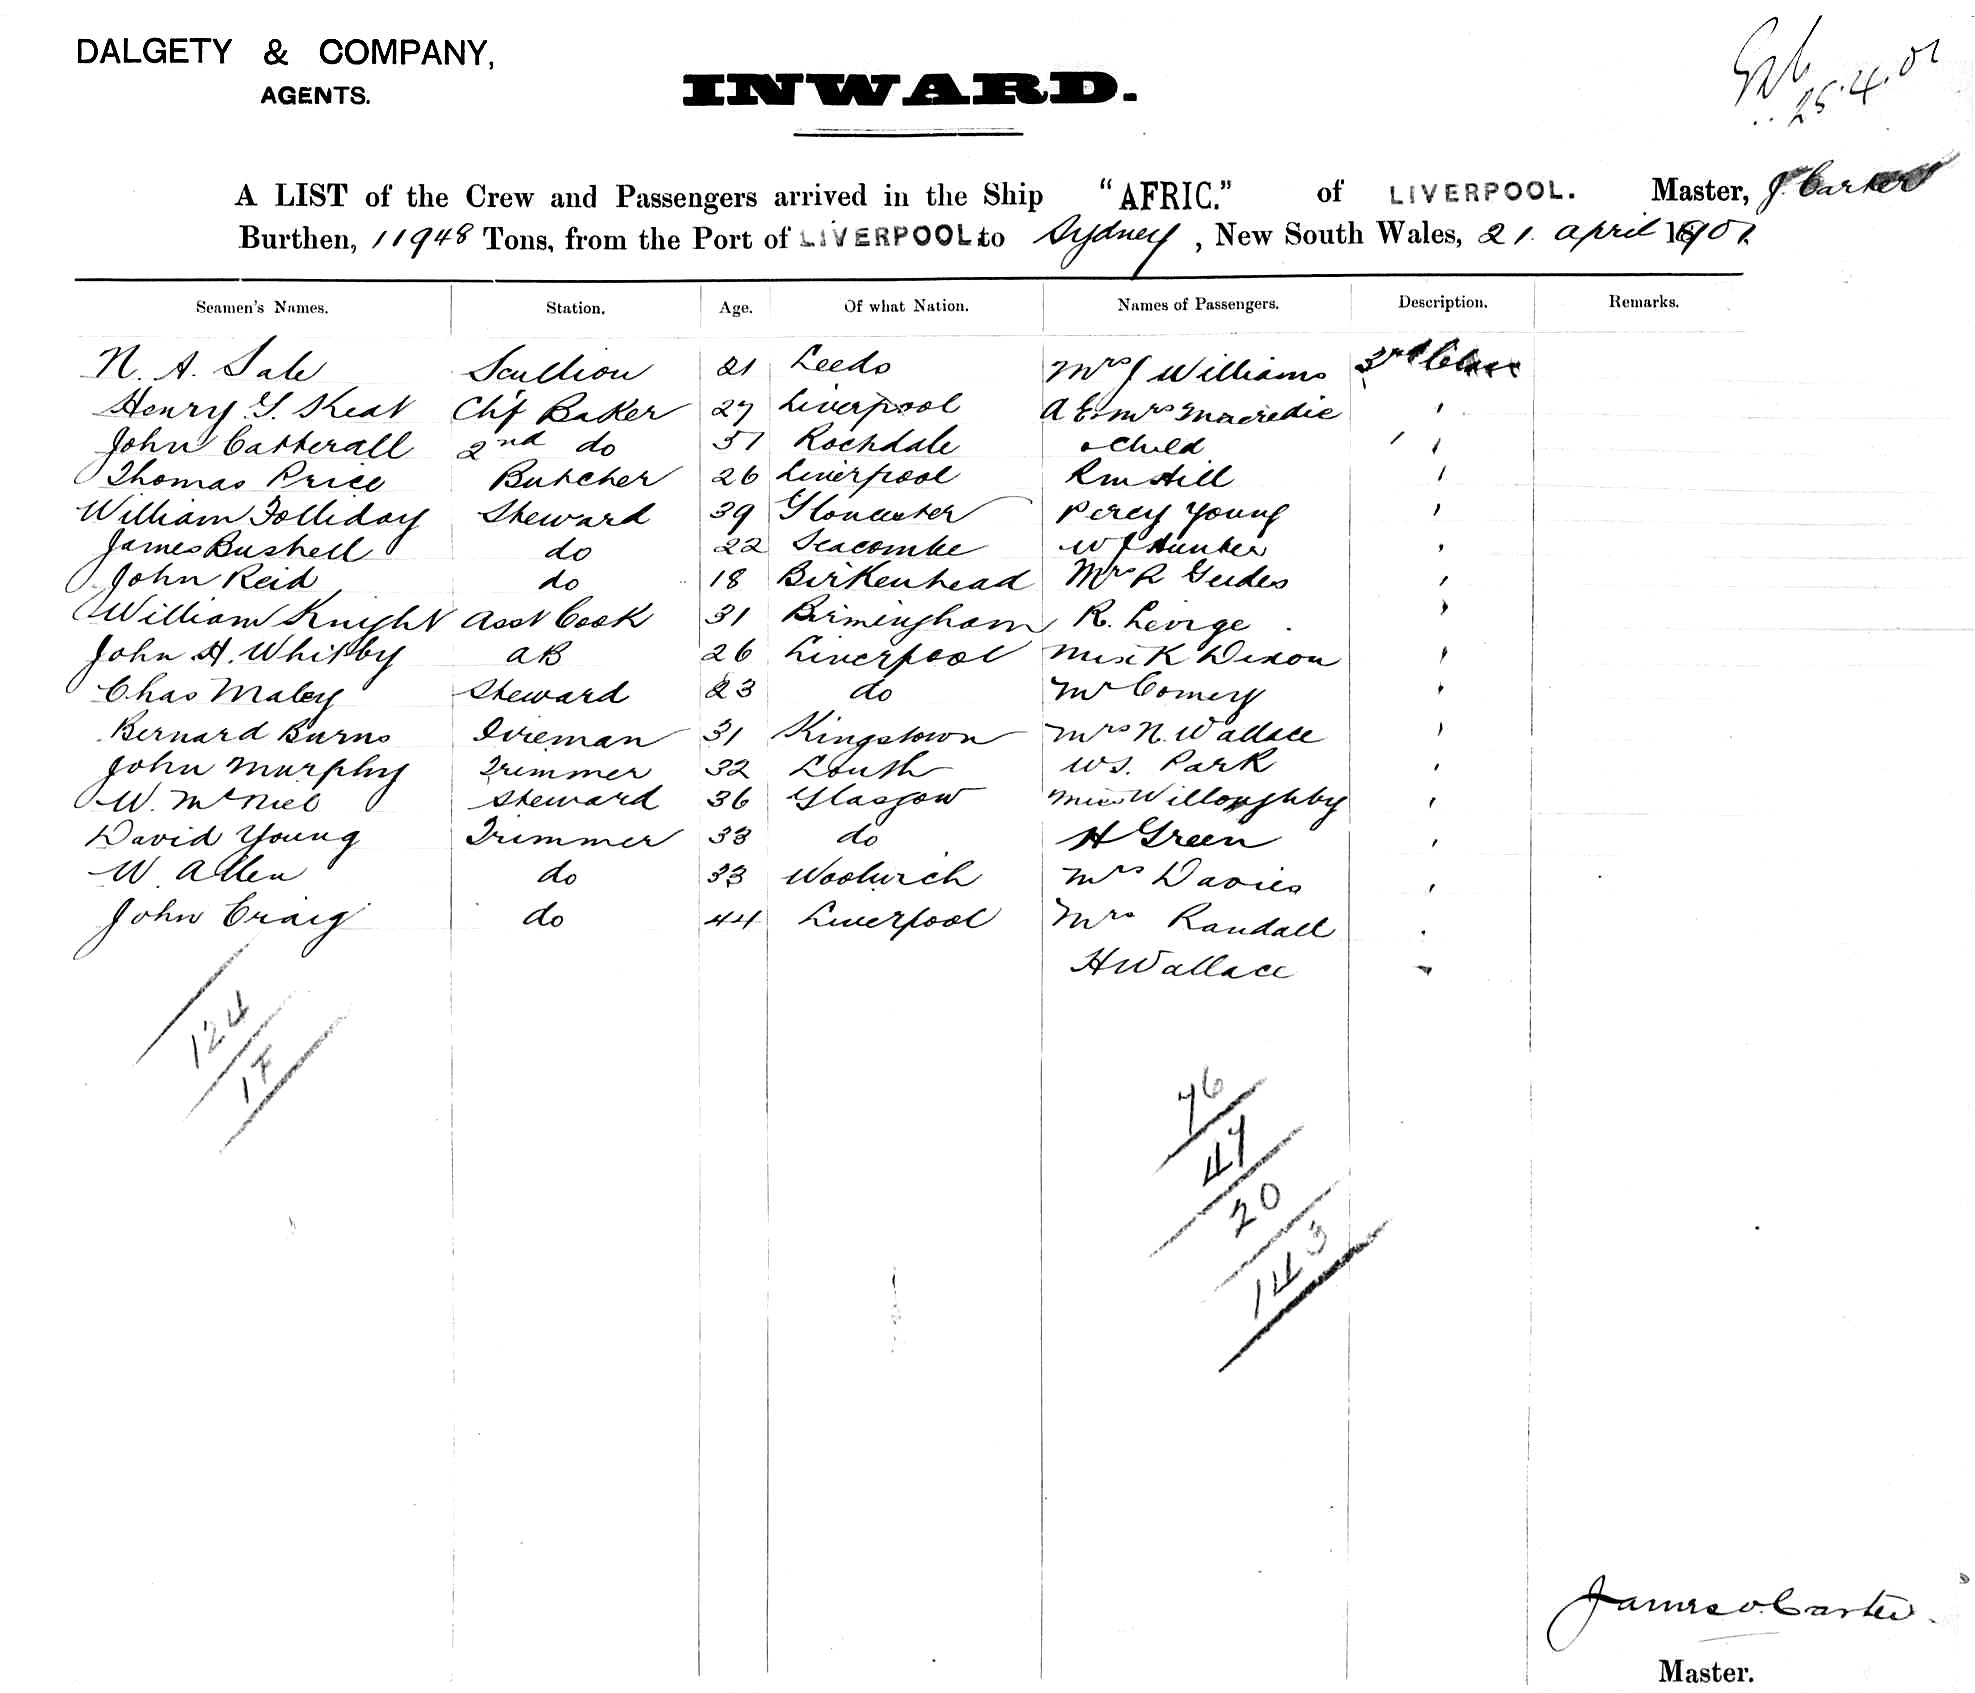 DALGETY & COMPANY,
AGENTS.
INWARD.
25.4.01
A LIST of the Crew and Passengers arrived in the Ship "AFRIC." of LIVERPOOL. Master, J. Carter
Burthen, 11948 Tons, from the Port of LIVERPOOL to Sydney, New South Wales, 21. april 1901
Seamen's Names. Station. Age. Of what Nation. Names of Passengers. Description. Remarks.
N. A. Sale Scullion 21 Leeds Mrs J Williams 3rd Class
Henry G. Keat Chf Baker 27 Liverpool A E & Mrs Macredie '
John Catterall 2nd do 51 Rochdale & Child ' '
Thomas Price Butcher 26 Liverpool R M Hill '
William Folliday Steward 39 Gloucester Percy Young '
James Bushell do 22 Seacombe W J Hunter '
John Reid do 18 Birkenhead Mrs R Geddes '
William Knight Asst Cook 31 Birmingham R. '
John H. Whitby AB 26 Liverpool Miss K Dixon '
Chas Maley Steward 23 do Mr Comery '
Bernard Burns Fireman 31 Kingstown Mrs N. Wallace '
John Murphy Trimmer 32 Louth W S. Park '
W. McNiel Steward 36 Glasgow Miss Willoughby '
David Young Trimmer 33 do H Green '
W. Allen do 33 Woolwich Mrs Davies '
John Craig do 44 Liverpool Mrs Randall '
H Wallace "
124
17
76
47
20
143
James Carter
Master.